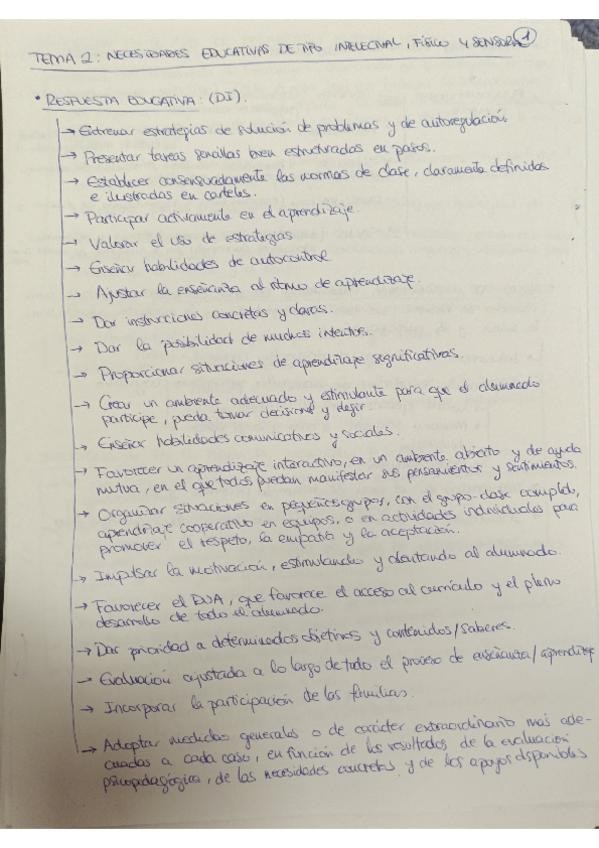 TEMA 2: NECESIDADES EDUCATIVAS DE TIPO INTELECTUAL, FÍSICO Y SENSORIAL 1
• RESPUESTA EDUCATIVA: (DI).
→ Entrenar estrategias de solución de problemas y de autoregulación
→ Presentar tareas sencillas bien estructuradas en pasos.
→ Establecer consensuadamente las normas de clase, claramente definidas
e ilustradas en carteles.
→ Participar activamente en el aprendizaje.
→ Valorar el uso de estrategias
→ Enseñar habilidades de autocontrol
→ Ajustar la enseñanza al ritmo de aprendizaje.
→ Dar instrucciones concretas y claras.
→ Dar la posibilidad de muchos intentos.
→ Proporcionar situaciones de aprendizaje significativas.
→ Crear un ambiente adecuado y estimulante para que el alumnado
participe, pueda tomar decisiones y elegir
→ Enseñar habilidades comunicativas y sociales.
→ Favorecer un aprendizaje interactivo, en un ambiente abierto y de ayuda
mutua, en el que todos puedan manifestar sus pensamientos y sentimientos.
→ Organizar situaciones en pequeños grupos, con el grupo-clase completo,
aprendizaje cooperativo en equipos, o en actividades individuales para
promover el respeto, la empatía y la aceptación.
→ Impulsar la motivación, estimulando y alentando al alumnado.
→ Favorecer el DUA, que favorece el acceso al currículo y el pleno
desarrollo de todo el alumnado.
→ Dar prioridad a determinados objetivos y contenidos/saberes.
→ Evaluación ajustada a lo largo de todo el proceso de enseñanza/aprendizaje
→ Incorporar la participación de las familias.
→ Adoptar medidas generales o de carácter extraordinario más ade-
cuadas a cada caso, en función de los resultados de la evaluación
psicopedagógica, de las necesidades concretas y de los apoyos disponibles